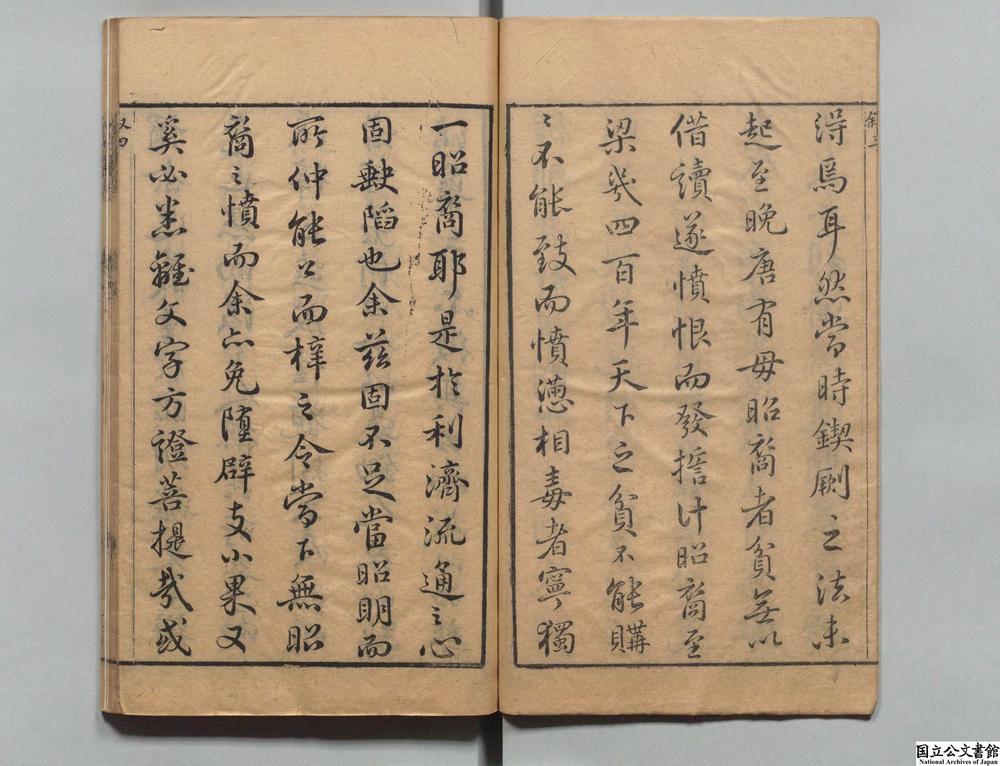 敘三
得焉耳然當時鍥劂之法未
起至晚唐有毋昭裔者貧無以
借讀遂憤恨而發㨪计昭裔至
梁幾四百年天下之貧不能購
〻不能致而憤懑相毒者寧獨
一昭裔耶是於利濟流通〻心
固缺陷也余茲固不足當昭明而
所仲能公而梓之令當下無昭
裔〻憤而余亦免墮辟支小果又
奚必悉離文字方證菩提哉或
叙四
国立公文書館
National Archives of Japan